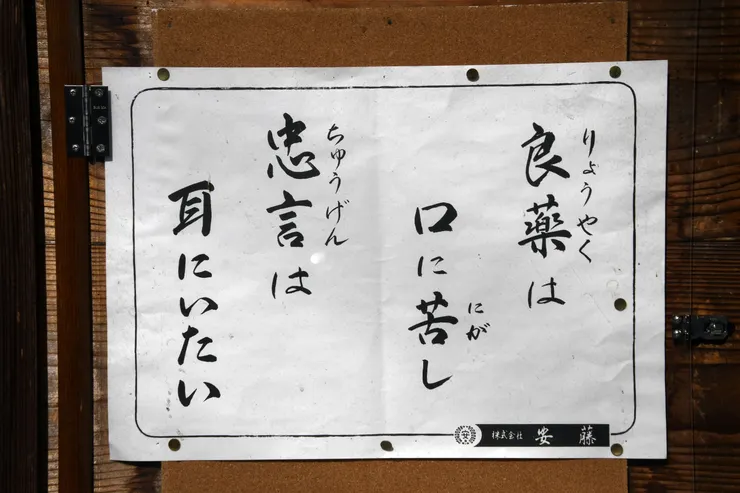 良薬は
りょうやく
口に苦し
にが
忠言は
ちゅうげん
耳にいたい
株式会社 安藤